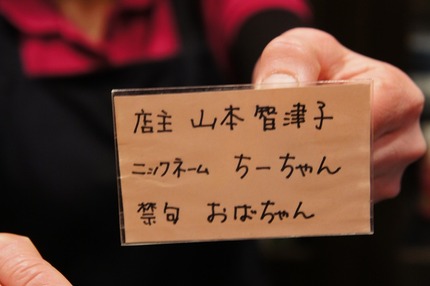 店主 山本智津子
ニックネーム ちーちゃん
禁句 おばちゃん